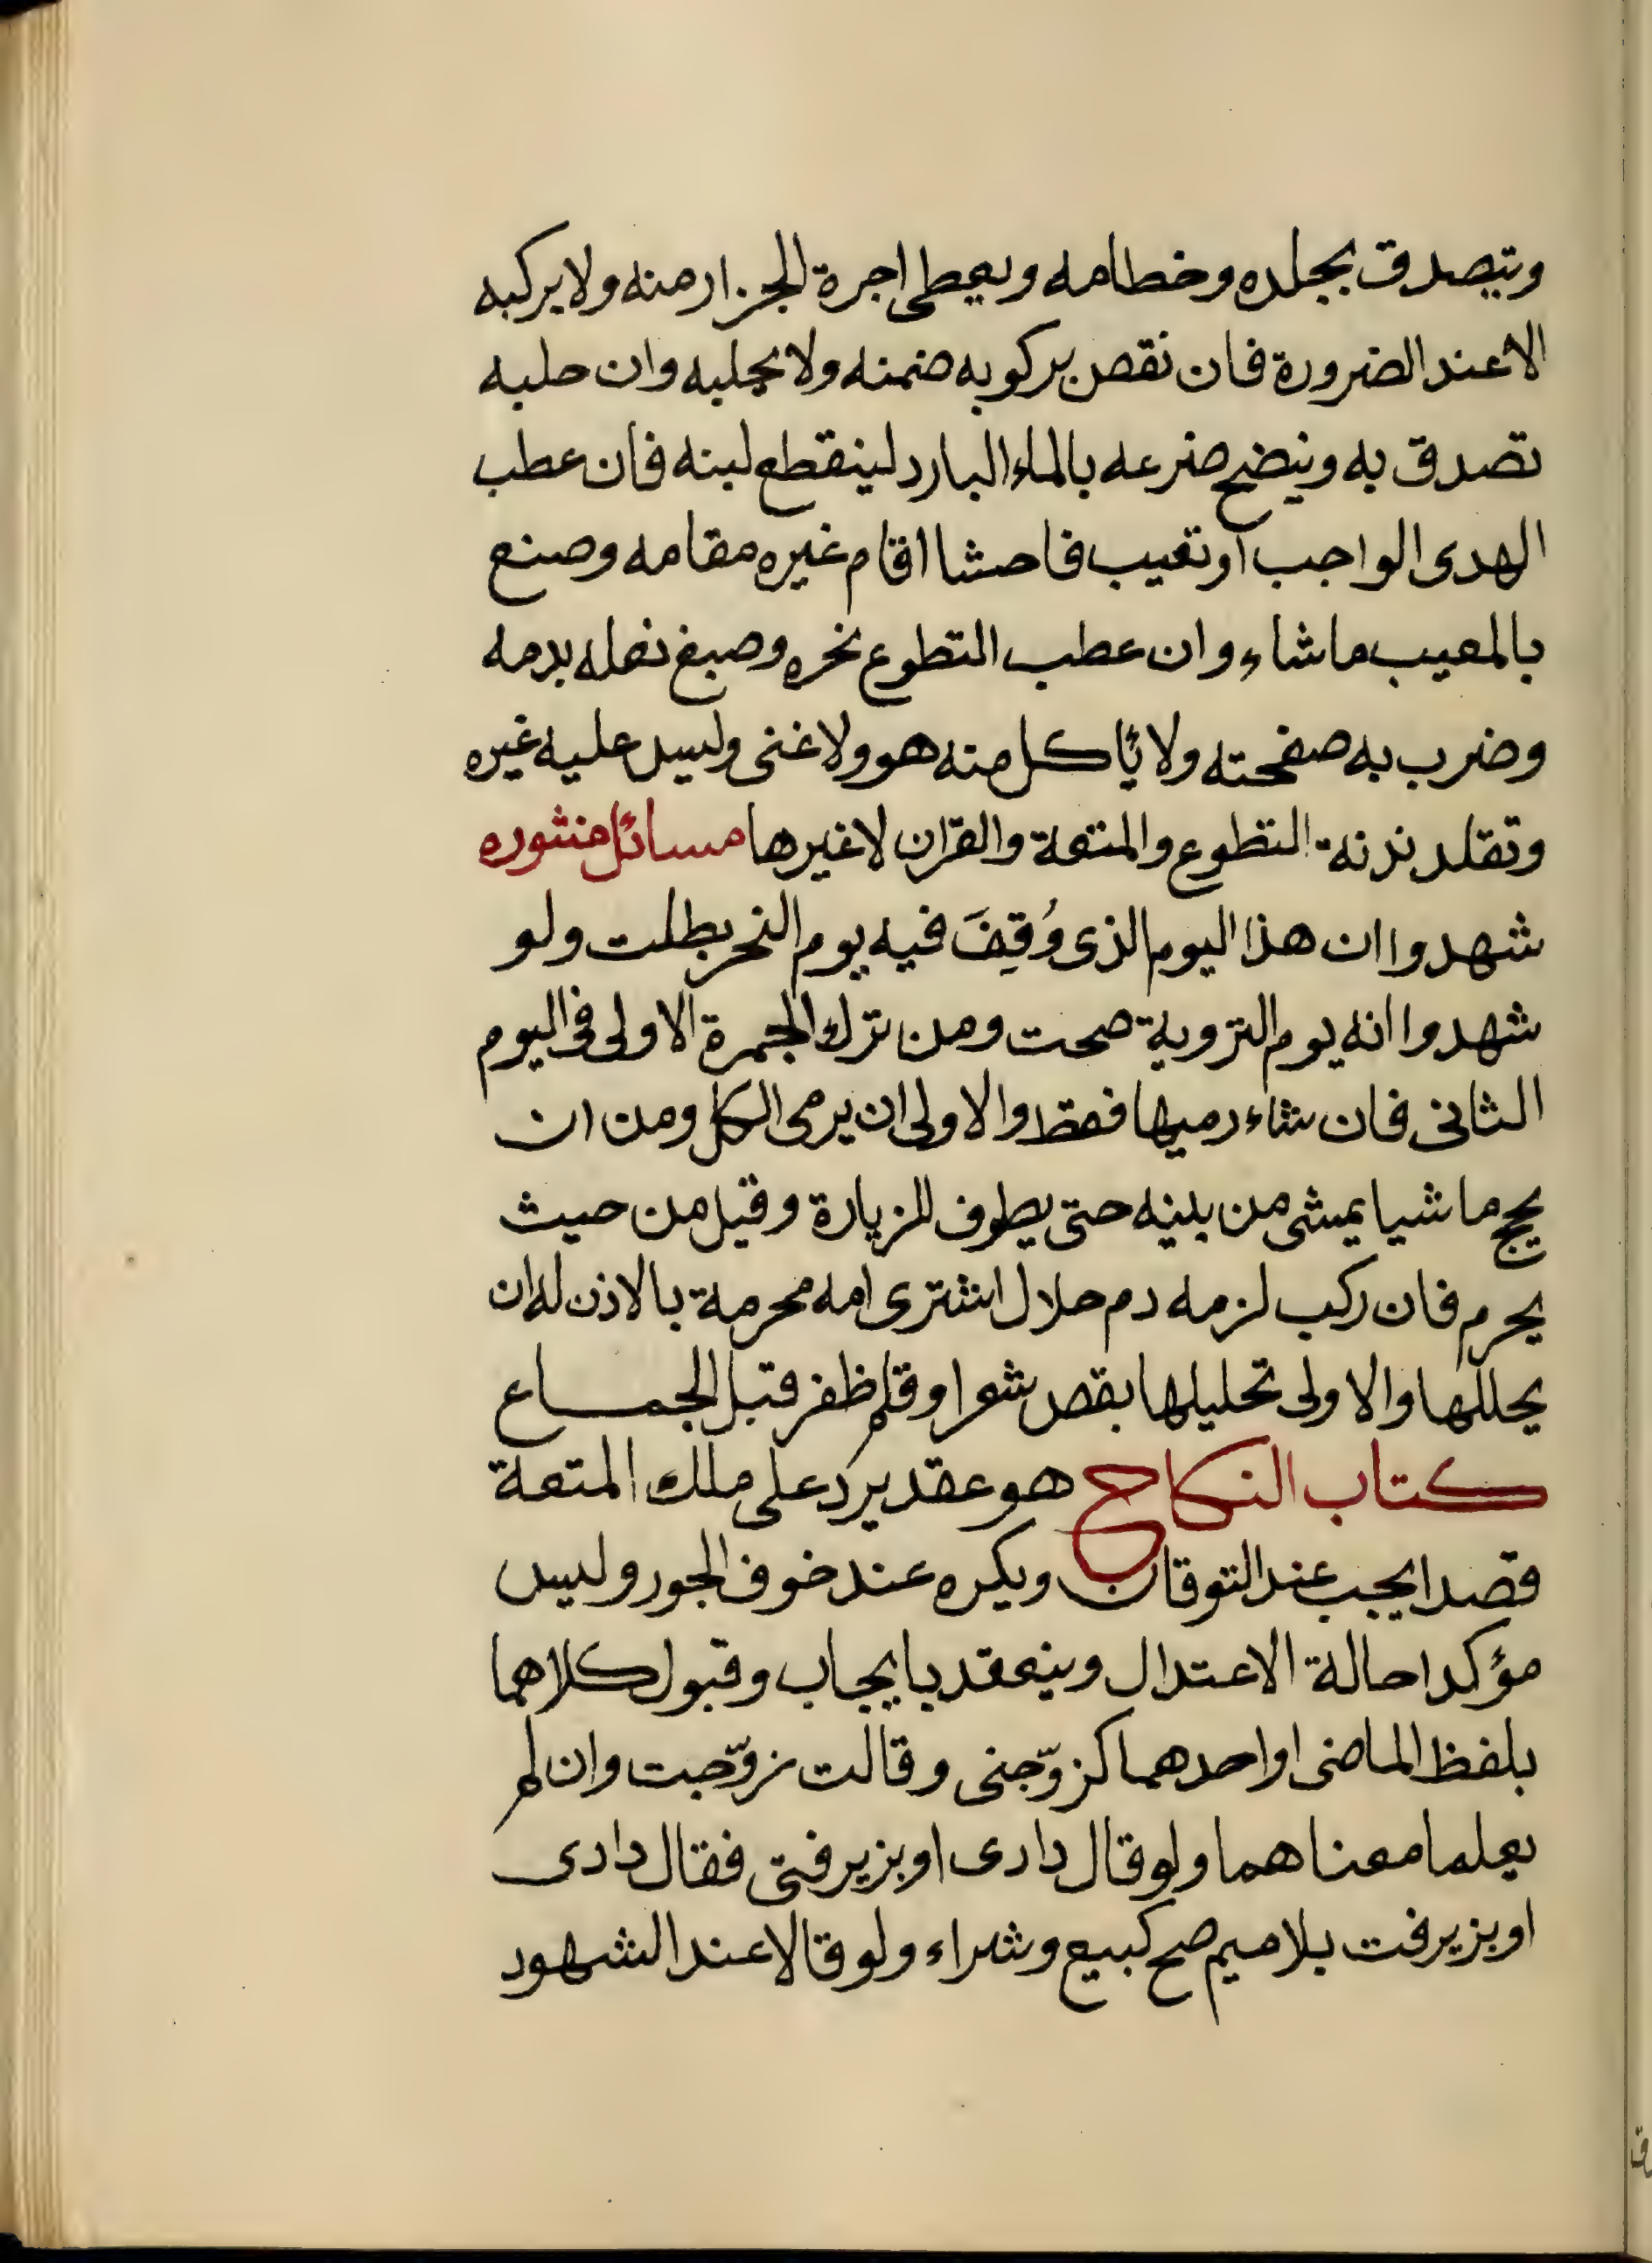 ويتصدق بجلده وخطامه ويعطى اجرة الجزار منه ولا يركبه
الا عند الضرورة فان نقص بركوبه ضمنه ولا يحلبه وان حلبه
تصدق به وينضح ضرعه بالماء البارد لينقطع لبنه فان عطب
الهدى الواجب او تعيب فاحشا اقام غيره مقامه وصنع
بالمعيب ما شاء وان عطب التطوع نحره وصبغ نعله بدمه
وضرب به صفحته ولا يأكل منه هو ولا غنى وليس عليه غيره
وتقلد بدنة التطوع والمتعة والقران لا غيرها مسائل منثوره
شهدوا ان هذا اليوم الذى وُقِفَ فيه يوم النحر بطلت ولو
شهدوا انه يوم التروية صحت ومن ترك الجمرة الاولى فى اليوم
الثانى فان شاء رميها فقط والاولى ان يرمى الكل ومن ان
يحج ماشيا يمشى من بيته حتى يطوف للزيارة وقيل من حيث
يحرم فان ركب لزمه دم حلال اشترى امه محرمة بالاذن له ان
يحللها والاولى تحليلها بقص شعر او قلم ظفر قبل الجماع
كتاب النكاح هو عقد يرد على ملك المتعة
قصدا يجب عند التوقان ويكره عند خوف الجور وليس
مؤكدا حالة الاعتدال وينعقد بايجاب وقبول كلاهما
بلفظ الماضى او احدهما كزوّجنى وقالت زوّجت وان لم
يعلما معناهما ولو قال دادى او بزيرفتى فقال دادى
او بزيرفت بلا ميم صح كبيع وشراء ولو قالا عند الشهود